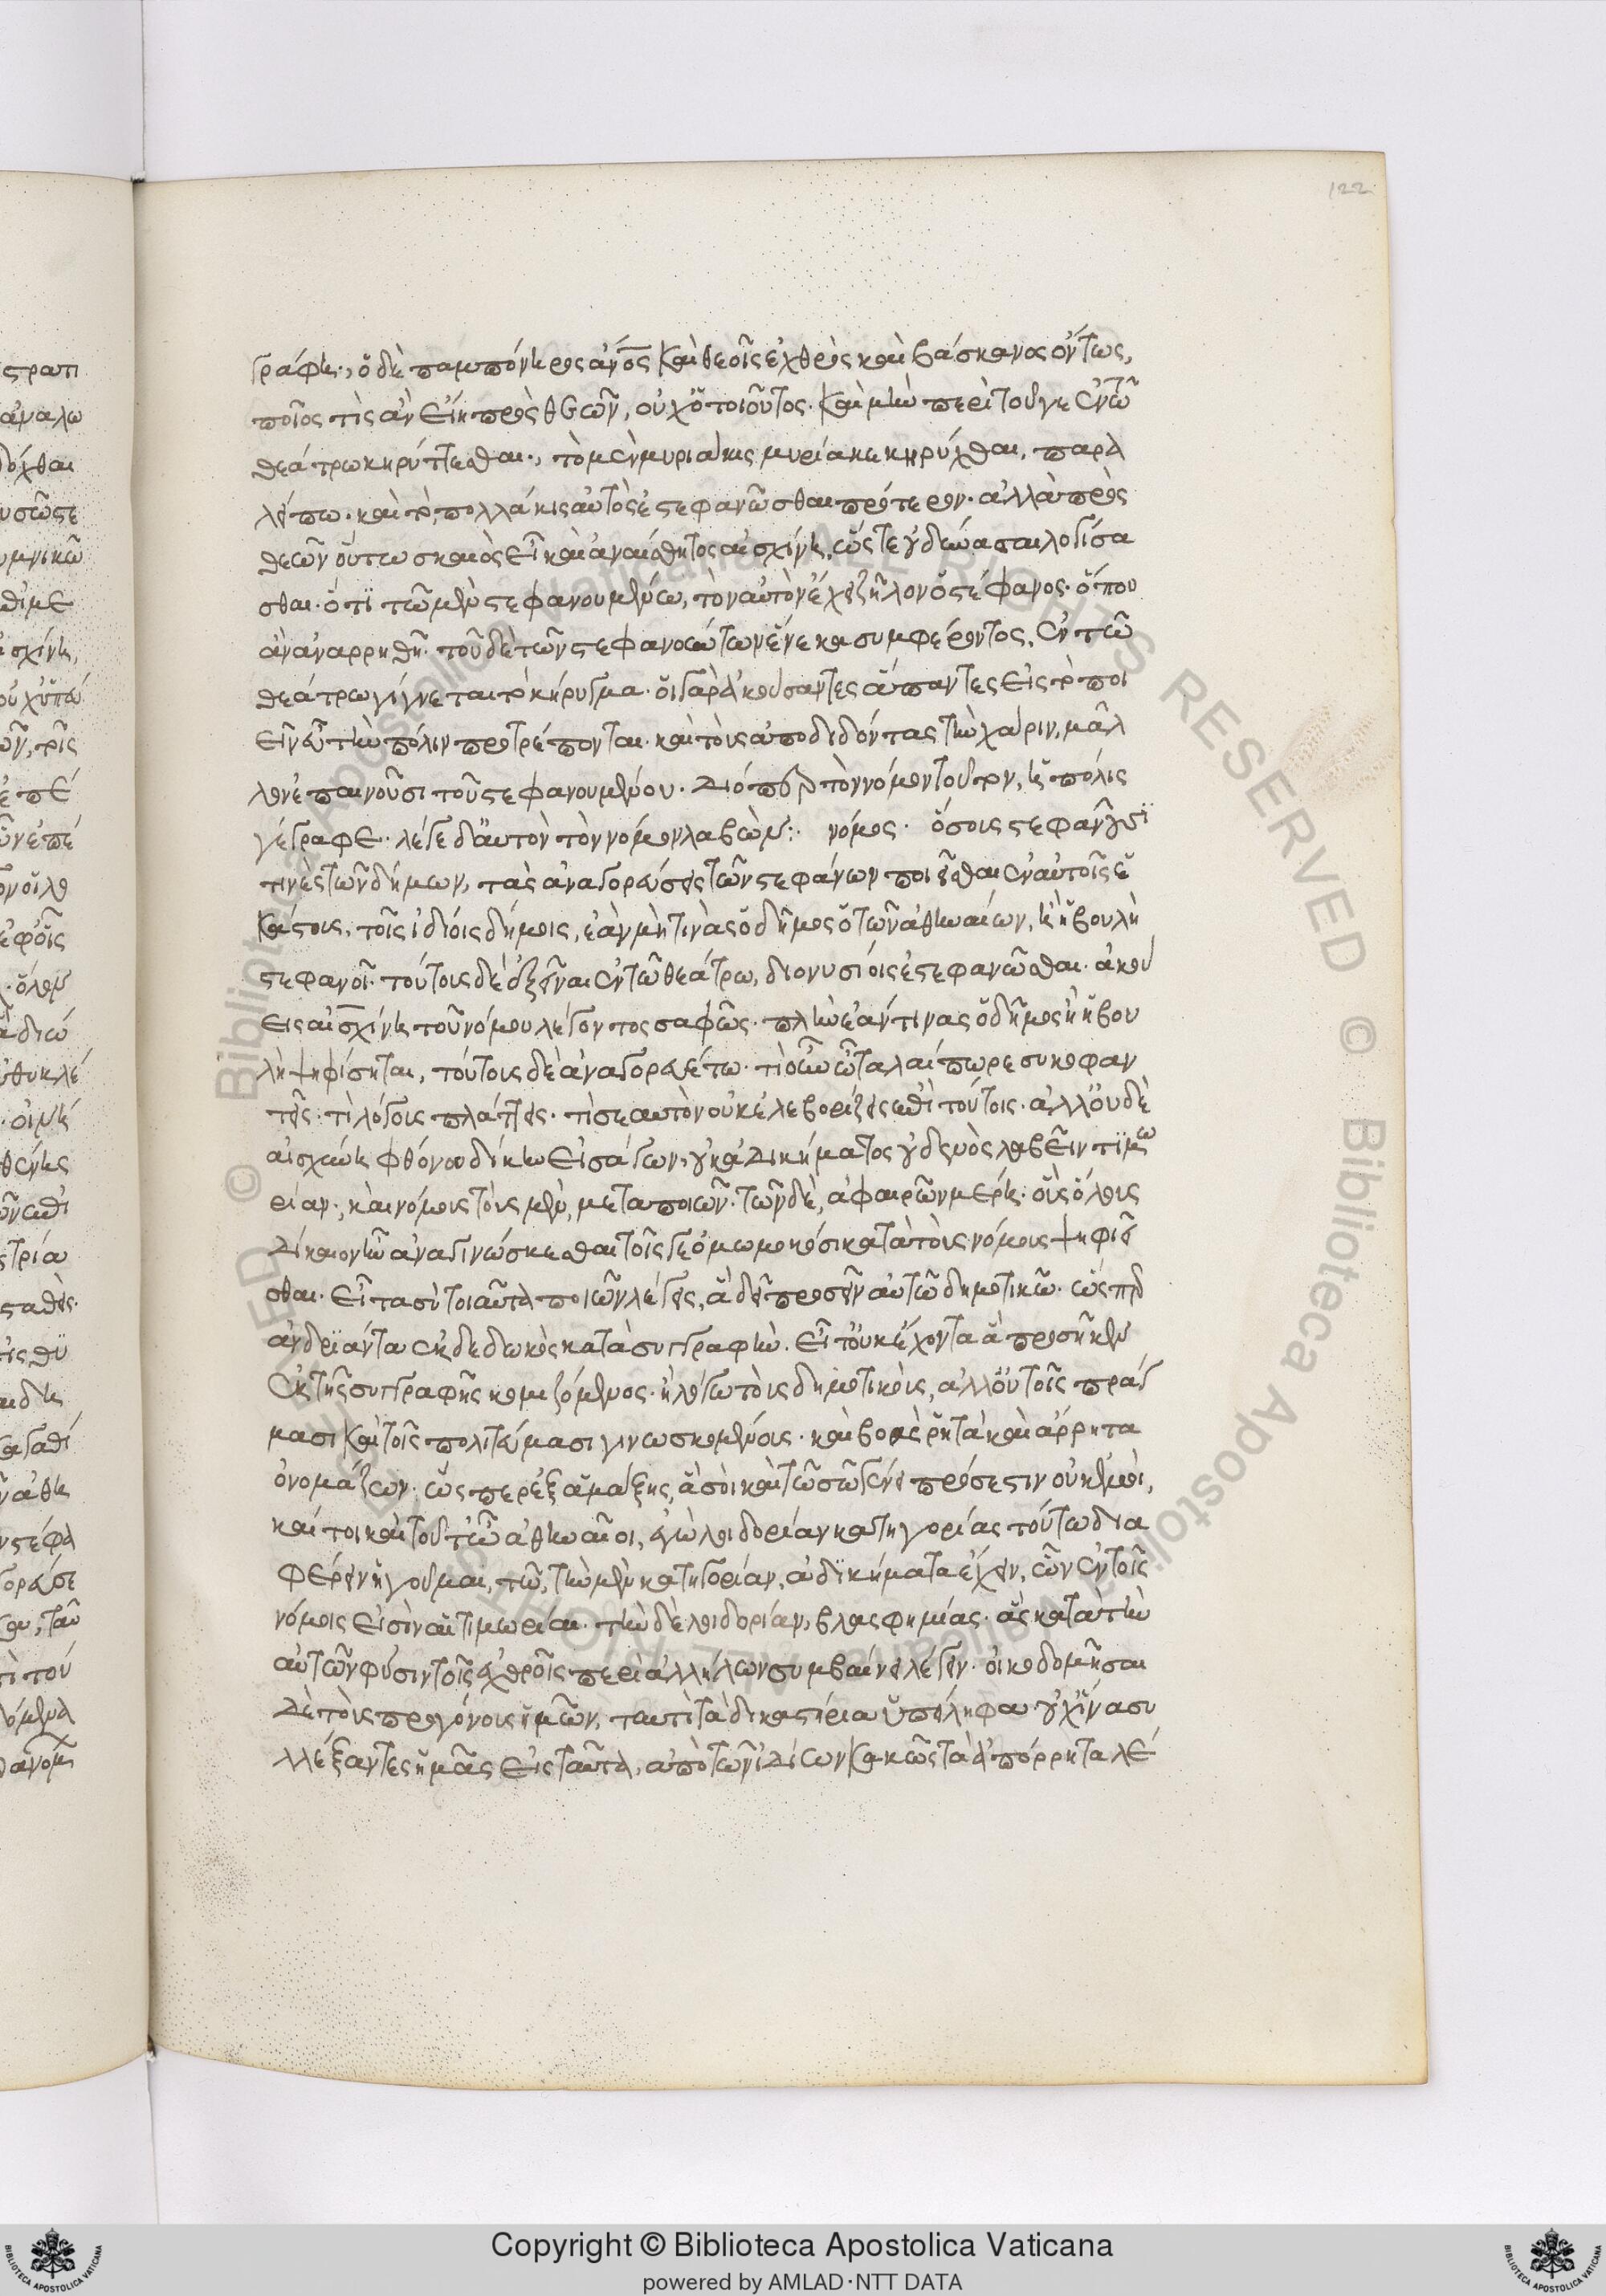 122
γράφη·, ὁ δὴ παμπόνηρος ἄνος καὶ θεοῖς ἐχθρὸς καὶ βάσκανος ὄντως,
ποῖος τὶς ἂν εἴη πρὸς θεῶν, οὐχ ὁ τοιοῦτος· καὶ μὴν περὶ τοῦ γε ἐν τῶ
θεάτρω κηρύττεσθαι·, τὸ μὲν μυριάκις μυρία κεκηρύχθαι, παρα
λείπω· καὶ τὸ, πολλάκις αὐτὸς ἐστεφανῶσθαι πρότερον· ἀλλὰ πρὸς
θεῶν οὕτω σκαιὸς εἶ καὶ ἀναίσθητος αἰσχίνη, ὥστε οὐ δύνασαι λογίσα
σθαι· ὅτι τῶ μὲν στεφανουμένω, τὸν αὐτὸν ἔχει ζῆλον ὁ στέφανος· ὅπου
ἂν ἀναρρηθῆ· τοῦ δὲ τῶν στεφανούντων εἵνεκα συμφέροντος, ἐν τῶ
θεάτρω γίγνεται τὸ κήρυγμα· οἱ γὰρ ἀκούσαντες ἅπαντες εἰς τὸ ποι
εῖν εὖ τὴν πόλιν προτρέπονται· καὶ τοὺς ἀποδιδόντας τὴν χάριν, μᾶλ
λον ἐπαινοῦσι τοῦ στεφανουμένου· διόπερ τὸν νόμον τοῦτον, ἡ πόλις
γέγραφε· λέγε δ' αὐτὸν τὸν νόμον λαβών:· νόμος· ὅσους στεφανοῦσι
τινὲς τῶν δήμων, τὰς ἀναγορεύσεις τῶν στεφάνων ποιεῖσθαι ἐν αὐτοῖς ἑ
κάστους, τοῖς ἰδίοις δήμοις, ἐὰν μή τινὰς ὁ δῆμος ὁ τῶν ἀθηναίων, ἢ ἡ βουλὴ
στεφανοῖ· τούτους δὲ ἐξεῖναι ἐν τῶ θεάτρω, διονυσίοις ἐστεφανῶσθαι· ἀκού
εις αἰσχίνη τοῦ νόμου λέγοντος σαφῶς· πλὴν ἐάν τινας ὁ δῆμος ἢ ἡ βου
λὴ ψηφίσηται, τούτους δὲ ἀναγορευέτω· τί οὖν ὦ ταλαίπωρε συκοφαν
τεῖς· τί λόγους πλάττεις· τί σεαυτὸν οὐκ ἐλεβορίζεις ἐπὶ τούτοις· ἀλλ' οὐδὲ
αἰσχύνη φθόνου δίκην εἰσάγων, οὐκ ἀδικήματος οὐδενὸς λαβεῖν τιμω
ρίαν·, καὶ νόμους τοὺς μὲν, μεταποιῶν· τῶν δὲ, ἀφαιρῶν μέρη· οὓς ὅλους
δίκαιον ἦν ἀναγινώσκεσθαι τοῖς γε ὀμωμοκόσι κατὰ τοὺς νόμους ψηφιεῖ
σθαι· εἶτα σὺ τοιαῦτα ποιῶν λέγεις, ἃ δεῖ προσεῖναι τῶ δημοτικῶ· ὥσπερ
ἀνδριάντα ἐκδεδωκὸς κατὰ συγγραφήν. εἶτ' οὐκ ἔχοντα ἃ προσῆκεν
ἐκ τῆς συγγραφῆς κομιζόμενος· ἢ λόγω τοὺς δημοτικοὺς, ἀλλ' οὐ τοῖς πράγ
μασι καὶ τοῖς πολιτεύμασι γινωσκομένους· καὶ βοᾶς ῥητὰ καὶ ἄρρητα
ὀνομάζων· ὥσπερ ἐξ ἁμάξης, ἃ σοὶ καὶ τῶ σῶ γένει πρόσεστιν οὐκ ἐμοὶ,
καί τοι καὶ τοῦτ' ὦ ἀθηναῖοι, ἐγὼ λοιδορίαν κατηγορίας τούτω δια
φέρειν ἡγοῦμαι, τῶ, τὴν μὲν κατηγορίαν, ἀδικήματα ἔχειν, ὧν ἐν τοῖς
νόμοις εἰσὶν αἱ τιμωρίαι· τὴν δὲ λοιδορίαν, βλασφημίας· ἃς κατὰ τὴν
αὑτῶν φύσιν τοῖς ἐχθροῖς περὶ ἀλλήλων συμβαίνει λέγειν· οἰκοδομῆσαι
δὲ τοὺς προγόνους ἡμῶν, ταυτὶ τὰ δικαστήρια ὑπείληφα· οὐχ ἵνα συ
λλέξαντες ἡμᾶς εἰς ταῦτα, ἀπὸ τῶν ἰδίων κακῶς τὰ ἀπόρρητα λέ
Copyright © Biblioteca Apostolica Vaticana
powered by AMLAD·NTT DATA